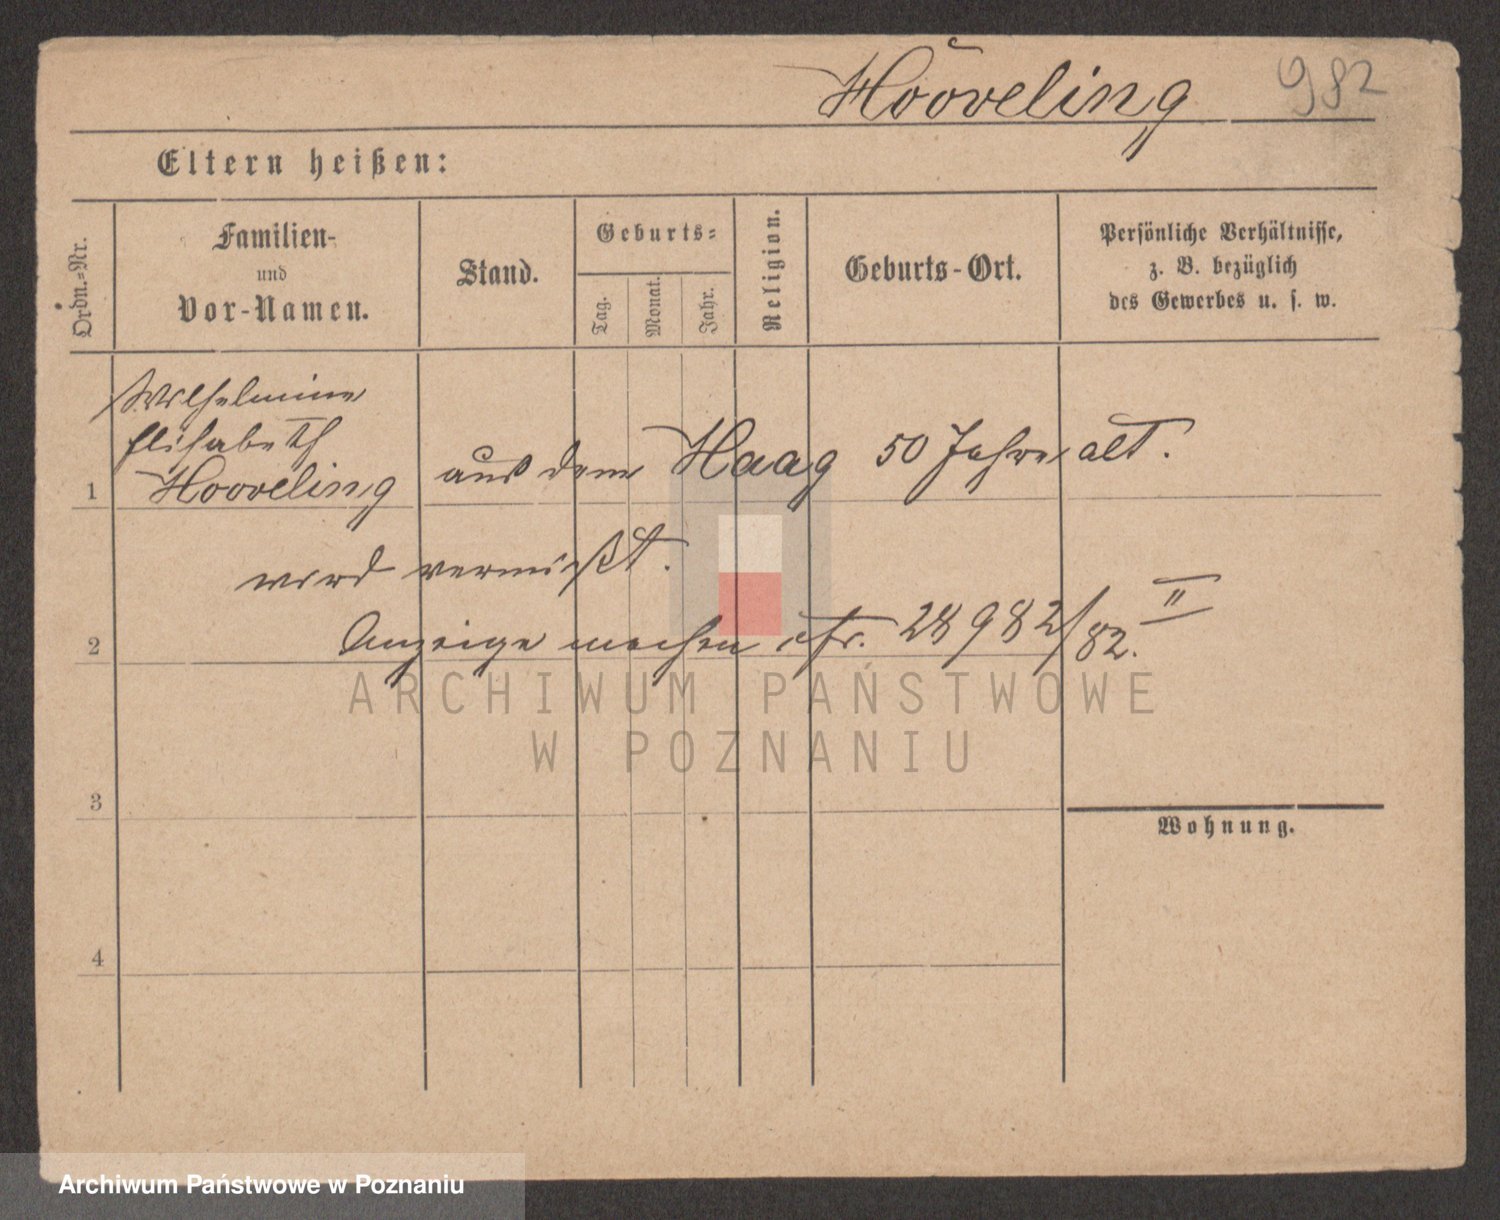 Hooveling 982
Eltern heißen:
Ordn.-Nr.
Familien-
und
Vor-Namen.
Stand.
Geburts-
Tag.
Monat.
Jahr.
Religion.
Geburts-Ort.
Persönliche Verhältnisse,
z. B. bezüglich
des Gewerbes u. s. w.
Wilhelmine
Elisabeth
1 Hooveling aus dem Haag 50 Jahre alt.
wird vermißt.
2 Anzeige machen cfr. 28982/82. II
ARCHIWUM PAŃSTWOWE
W POZNANIU
3
Wohnung.
4
Archiwum Państwowe w Poznaniu